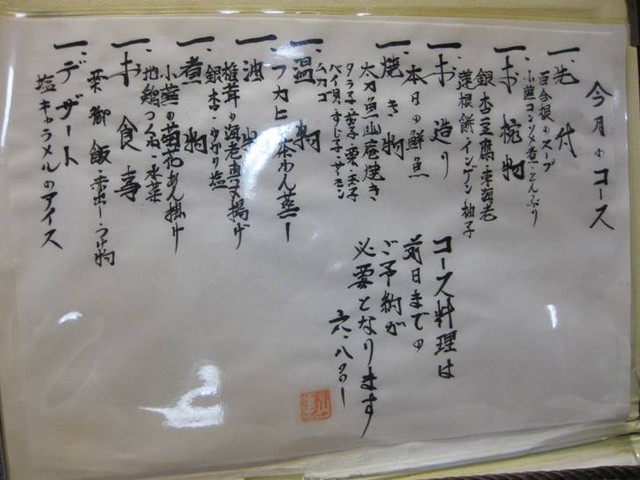 今月のコース
一、先代
百合根のスープ
小蕪コンソメ煮・とんぶり
一、お椀物
銀杏豆腐・車海老
蓮根餅・インゲン・柚子
一、お造り
本日の鮮魚
一、焼き物
太刀魚山椒焼き
タラ子・栗・
ベイ貝・すじ子・レモン
ムカゴ
一、温物
フカヒレ茶わん蒸し
一、油物
椎茸の海老真丈揚げ
銀杏・ゆかり塩
一、煮物
小蕪の菊花あん掛け
地鶏つくね・水菜
一、お食事
栗御飯・赤出し・香の物
一、デザート
塩キャラメルのアイス
コース料理は
前日までの
ご予約が
必要となります
六、八〇〇ー